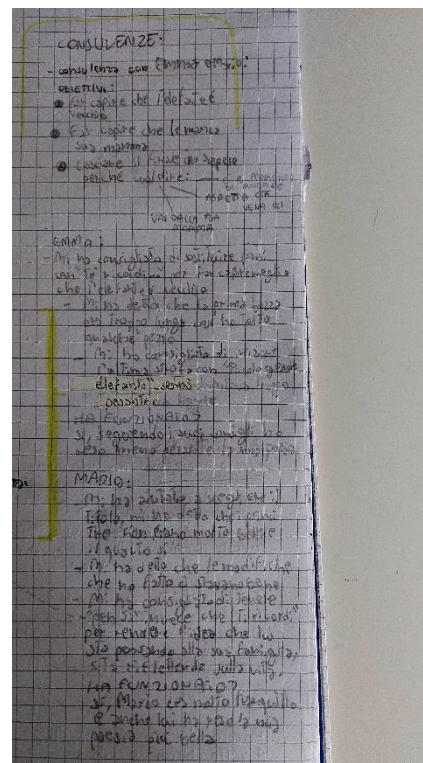 CONSULENZE:
- consulenza con Emma e Mario:
OBIETTIVI:
Far capire che l'elefante è
vecchio
Far capire che le manca
sua mamma
lasciare il finale in sospeso
perché vuol dire:
ASPETTA CHE
VAI DALLA TUA
MAMMA
EMMA:
- Mi ha consigliato di sostituire
con "Ti ricordi" per far capire meglio
che l'elefante è vecchio
- Mi ha detto che la prima
era troppo lunga e ho tolto
qualche pezzo
- Mi ha consigliato di iniziare
l'ultima strofa con
elefante"
"pesante"
HA FUNZIONATO?
Sì, seguendo i suoi consigli ho
reso meno pesante la mia poesia
MARIO:
- Mi ha aiutato a scegliere il
titolo, mi ha detto che i primi
tre non erano molto
il quarto sì
- Mi ha detto che le modifiche
che ho fatto ci stavano bene
- Mi ha consigliato di tenere
"pensi" invece che "ti ricordi"
per rendere l'idea che lui
sta pensando alla sua famiglia,
sta riflettendo sulla vita.
HA FUNZIONATO?
Sì, Mario era molto tranquillo
e anche lui ha reso la mia
poesia più bella